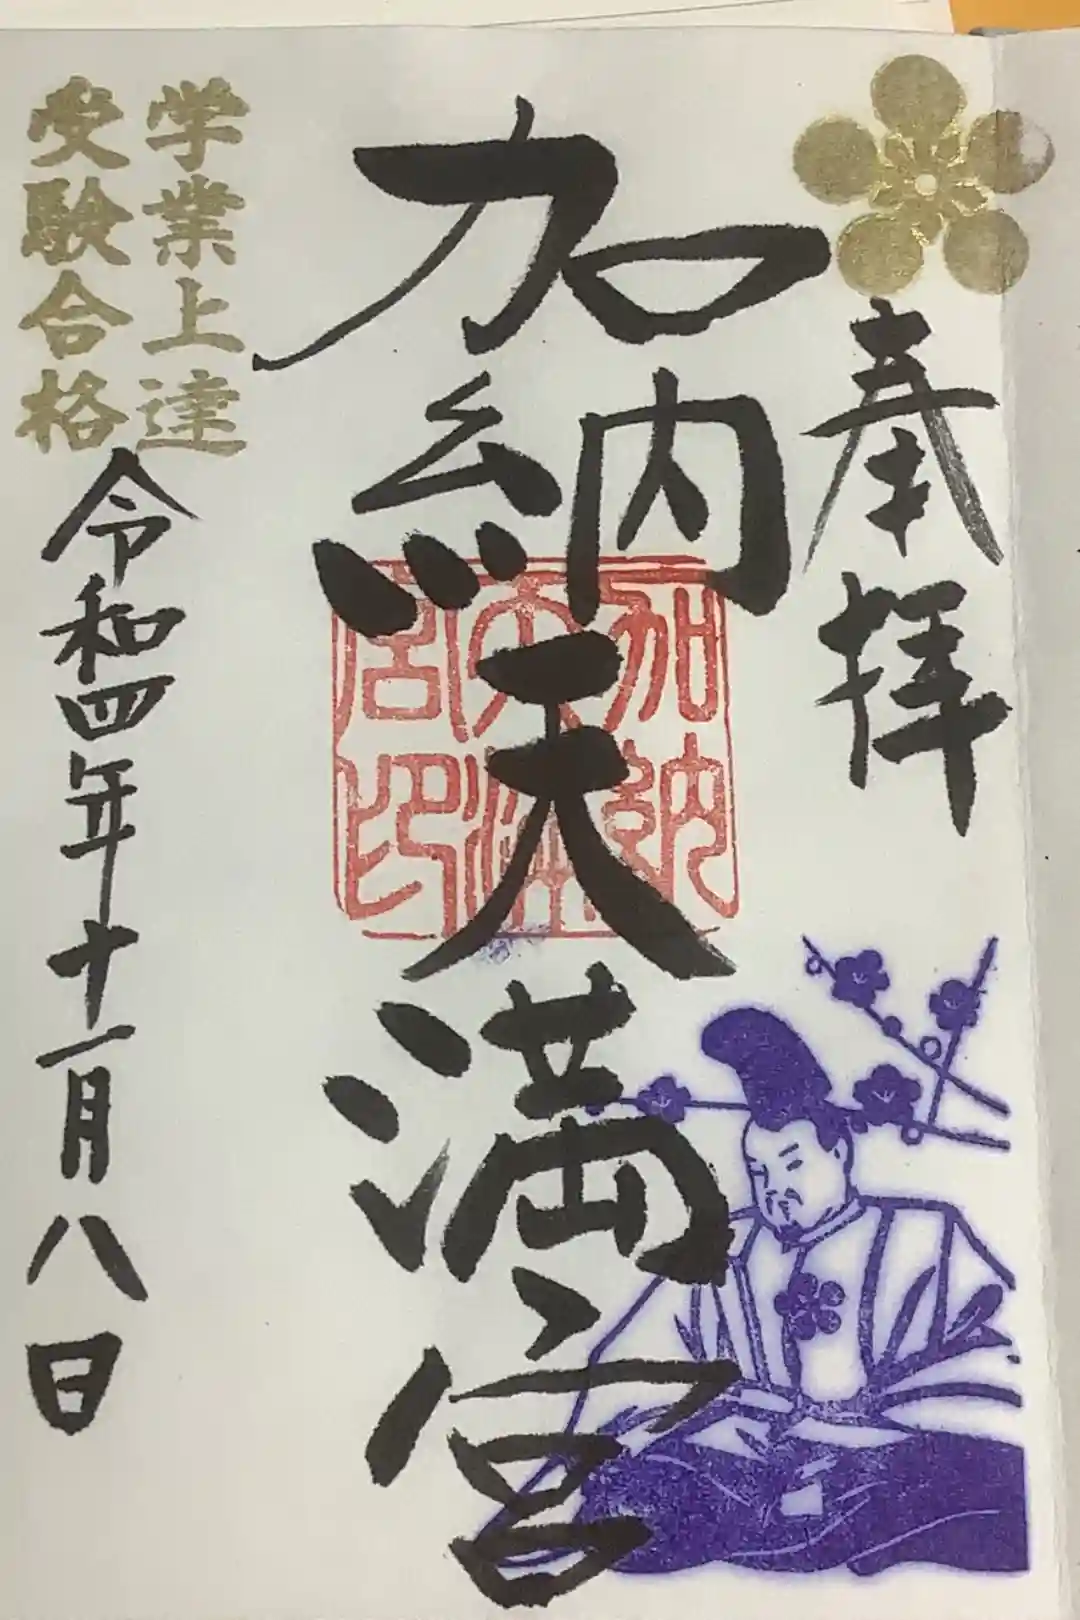 奉拝
加納天満宮
加納
天満
宮印
学業上達
受験合格
令和四年十一月八日